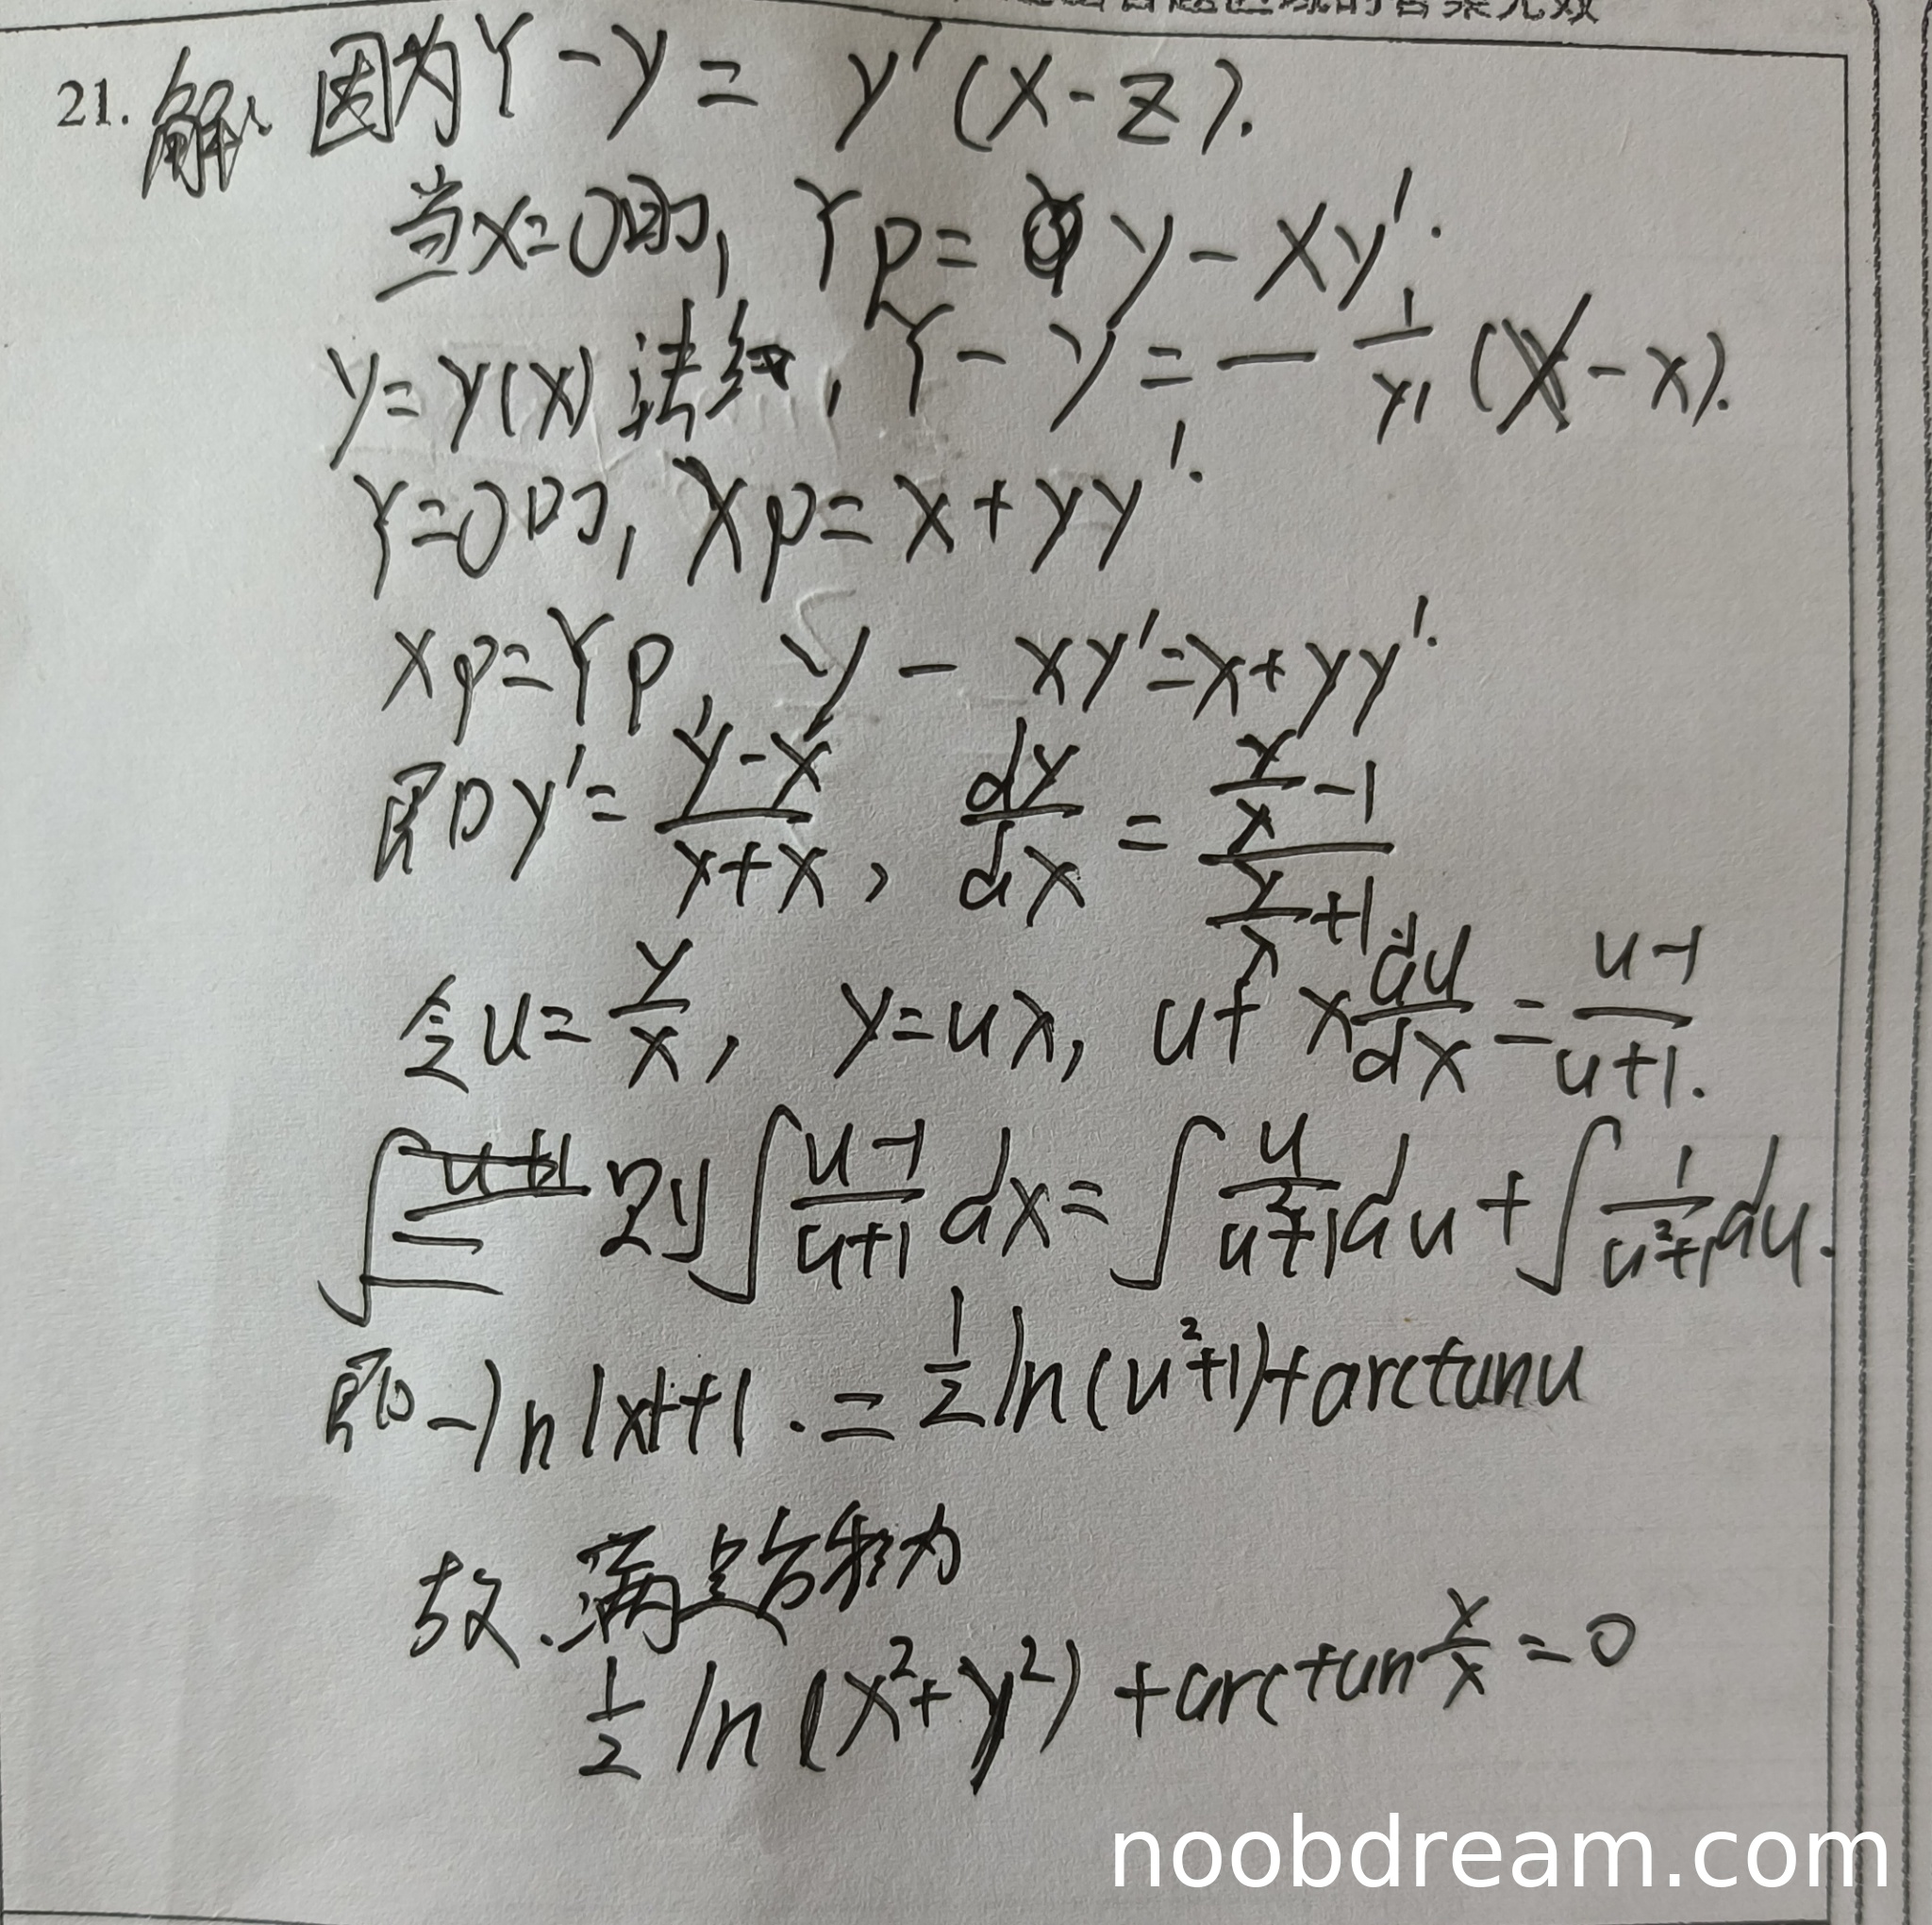 21. 解. 因为 Y - y = y'(X - z).
当x=0时, Yp = y - xy'.
y = y(x) 法线, Y - y = - 1/y' (X - x).
Y=0时, Xp = x + yy'.
Xp = Yp, y - xy' = x + yy'.
即 y' = (y-x)/(x+x), dy/dx = (y/x - 1)/(y/x + 1).
令 u = y/x, y = ux, u + x du/dx = (u-1)/(u+1).
则 ∫ (u-1)/(u+1) dx = ∫ u/(u²+1) du + ∫ 1/(u²+1) du.
即 -ln|x|+1. = 1/2 ln(u²+1) + arctanu
故. 满足方程为
1/2 ln(x²+y²) + arctan y/x = 0
noobdream.com